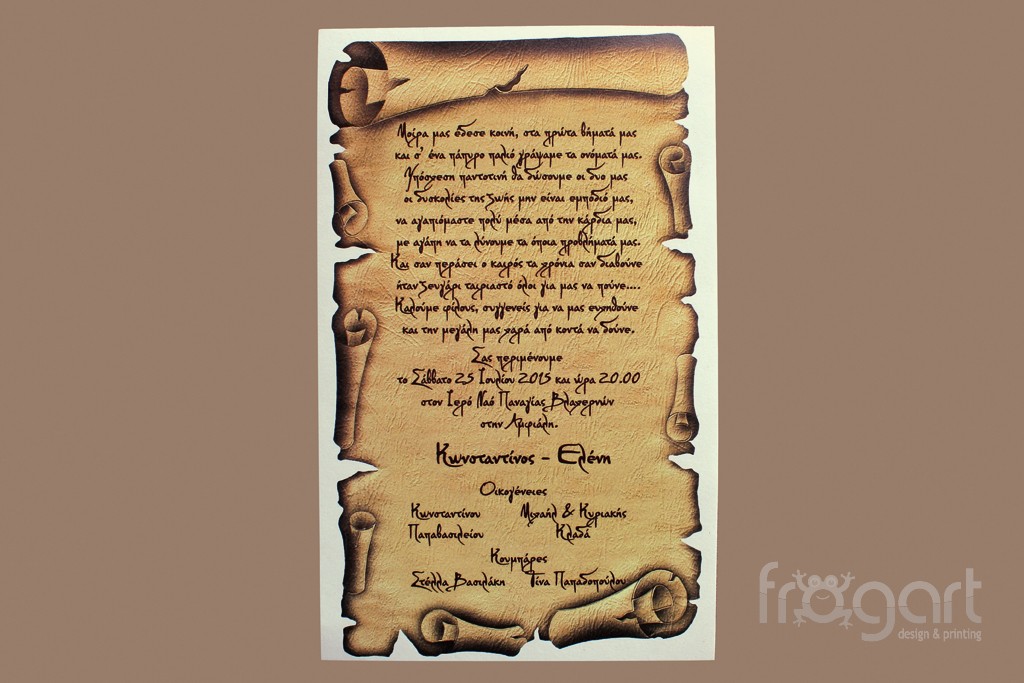 Μοίρα μας έδεσε κοινή, στα πρώτα βήματά μας
και σ' ένα πάπυρο παλιό γράψαμε τα ονόματά μας.
Υπόσχεση παντοτινή θα δώσουμε οι δυο μας
οι δυσκολίες της ζωής μην είναι εμπόδιό μας,
να αγαπιόμαστε πολύ μέσα από την κάρδια μας,
με αγάπη να τα λύνουμε τα όποια προβλήματά μας.
Και σαν περάσει ο καιρός τα χρόνια σαν διαβούνε
ήταν ζευγάρι ταιριαστό όλοι για μας να πούνε....
Καλούμε φίλους, συγγενείς για να μας ευχηθούνε
και την μεγάλη μας χαρά από κοντά να δούνε.
Σας περιμένουμε
το Σάββατο 25 Ιουλίου 2015 και ώρα 20.00
στον Ιερό Ναό Παναγίας Βλαχερνών
στην Αμφιάλη.
Κωνσταντίνος - Ελένη
Οικογένειες
Κωνσταντίνου Μιχαήλ & Κυριακής
Παπαβασιλείου Κλαδά
Κουμπάρες
Στέλλα Βασιλάκη Τίνα Παπαδοπούλου
frogart
design & printing